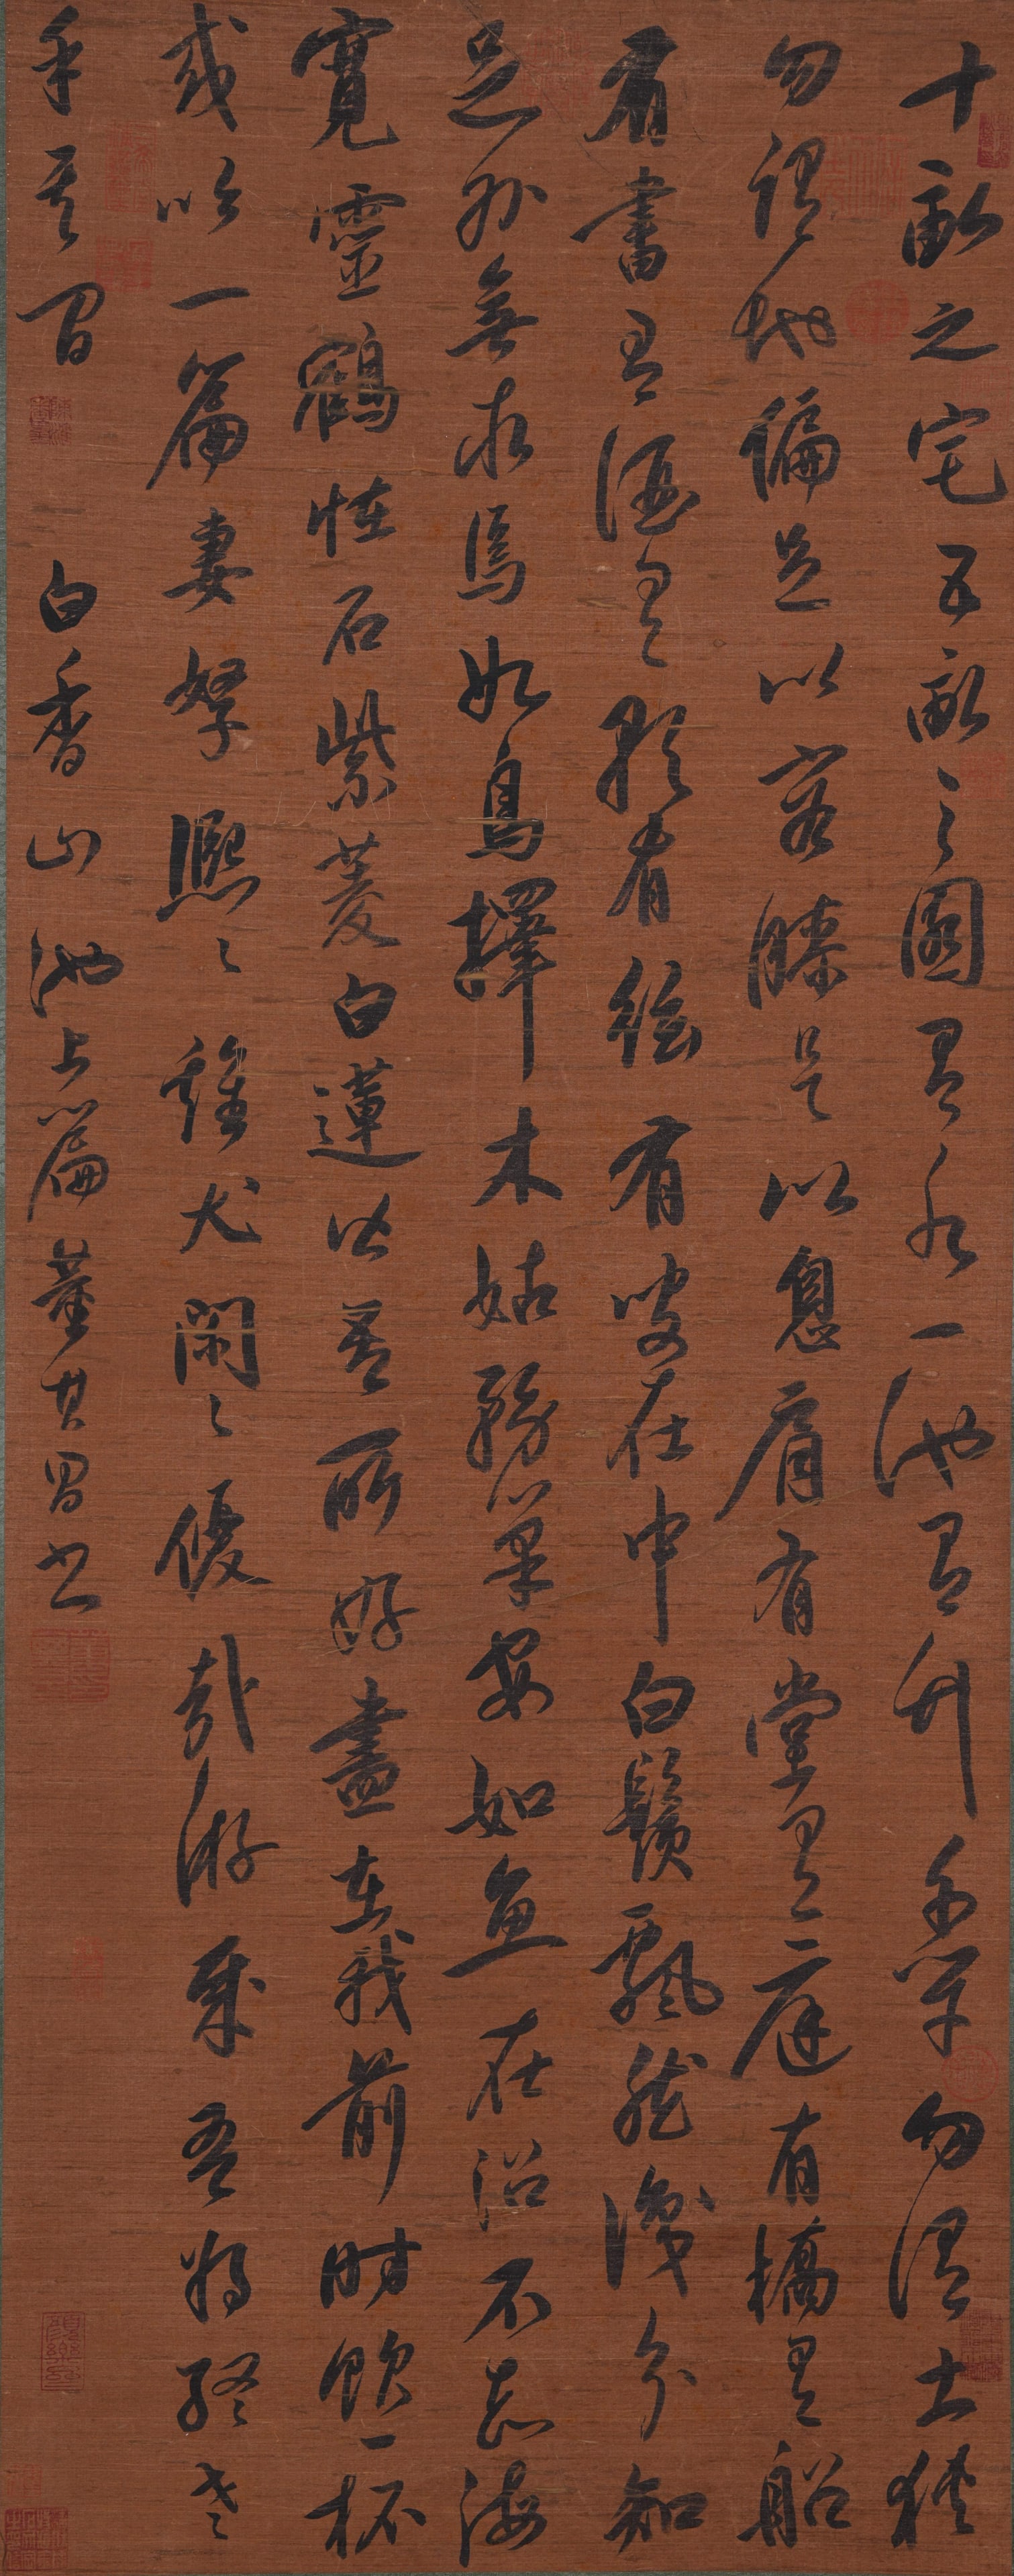 十畝之宅五畝之園有水一池有竹千竿勿謂土狹
勿謂地偏足以容膝足以息肩有堂有庭有橋有船
有書有酒有歌有絃有叟在中白鬚飄然識分知
足外無求焉如鳥擇木姑務巢安如魚在沼不知海
寬靈鶴怪石紫菱白蓮皆吾所好盡在我前時飲一杯
或吟一篇妻孥熙々雞犬閑々優哉游哉吾將終老
乎其間 白香山池上篇董其昌書